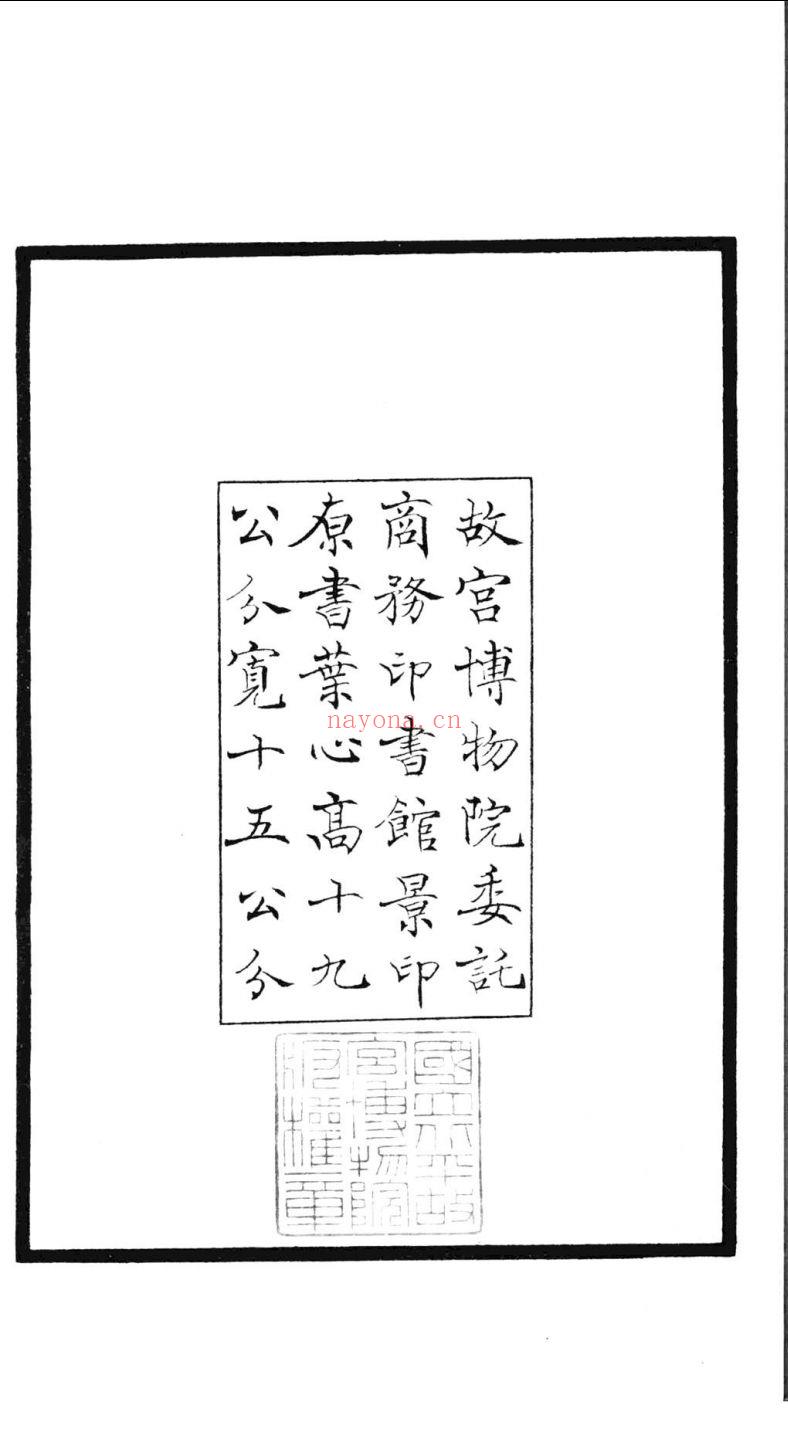 故宮博物院委託
商務印書館景印
原書葉心高十九
公分寬十五公分
nayona.cn
國立北平故
宮博物院
版權章